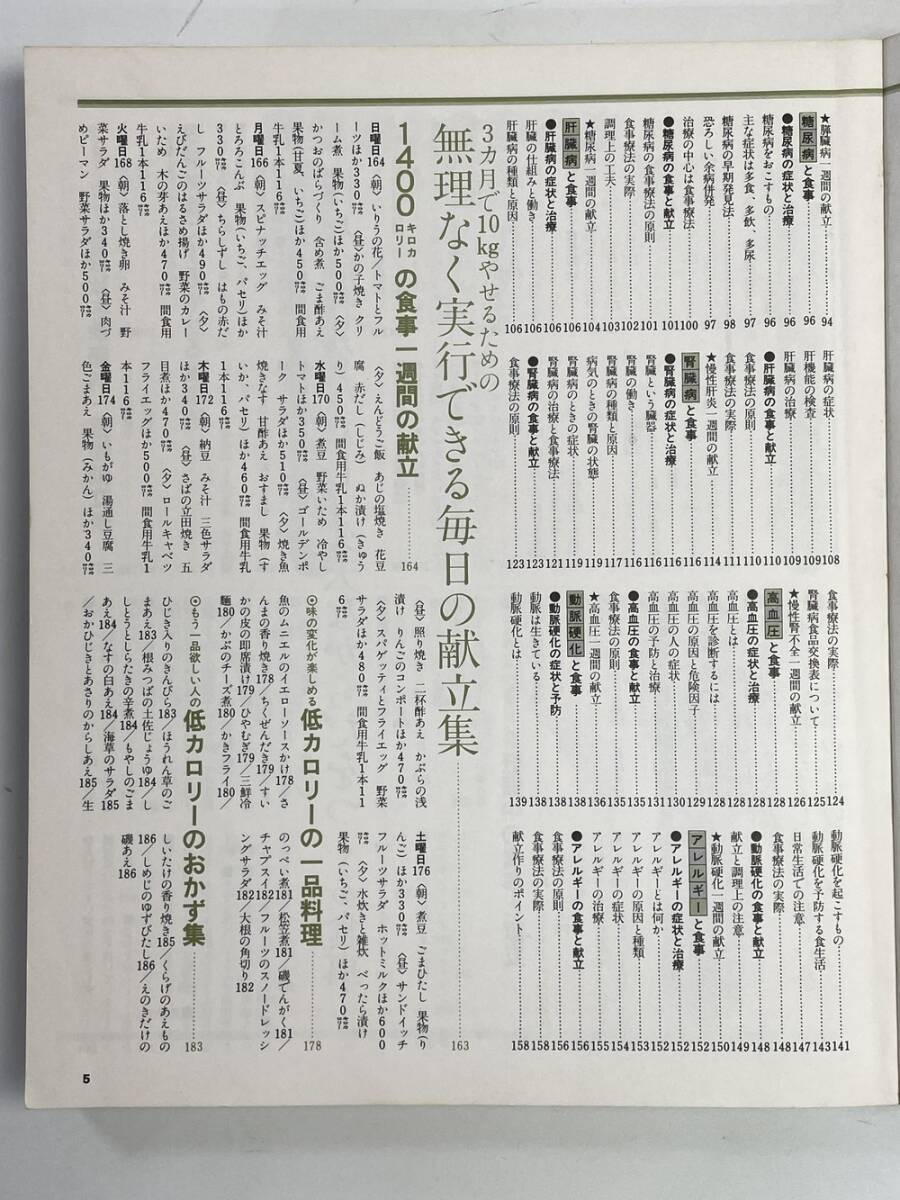 ★膵臓病一週間の献立……94
糖尿病と食事……96
●糖尿病の症状と治療……96
糖尿病をおこすもの……96
主な症状は多食、多飲、多尿……97
糖尿病の早期発見法……98
恐ろしい余病併発……97
治療の中心は食事療法……100
●糖尿病の食事と献立……101
糖尿病の食事療法の原則……101
食事療法の実際……102
調理上の工夫……103
★糖尿病一週間の献立……104
肝臓病と食事……106
●肝臓病の症状と治療……106
肝臓の仕組みと働き……106
肝臓病の種類と原因……106
肝臓病の症状……108
肝機能の検査……109
肝臓病の治療……109
●肝臓病の食事と献立……110
食事療法の原則……110
食事療法の実際……111
★慢性肝炎一週間の献立……114
腎臓病と食事……116
●腎臓病の症状と治療……116
腎臓という臓器……116
腎臓の働き……116
腎臓病の種類と原因……117
病気のときの腎臓の状態……119
腎臓病のときの症状……119
腎臓病の治療と食事療法……121
●腎臓病の食事と献立……123
食事療法の原則……123
食事療法の実際……124
腎臓病食品交換表について……125
★慢性腎不全一週間の献立……126
高血圧と食事……128
●高血圧の症状と治療……128
高血圧とは……128
高血圧を診断するには……128
高血圧の原因と危険因子……129
高血圧の人の症状……130
高血圧の予防と治療……131
●高血圧の食事と献立……135
食事療法の原則……135
★高血圧一週間の献立……136
動脈硬化と食事……138
●動脈硬化の症状と予防……138
動脈は生きている……138
動脈硬化とは……139
動脈硬化を起こすもの……141
動脈硬化を予防する食生活……143
日常生活での注意……147
食事療法の実際……148
●動脈硬化の食事と献立……148
献立と調理上の注意……149
★動脈硬化一週間の献立……150
アレルギーと食事……152
●アレルギーの症状と治療……152
アレルギーとは何か……152
アレルギーの原因と種類……153
アレルギーの症状……154
アレルギーの治療……155
●アレルギーの食事と献立……156
食事療法の原則……156
食事療法の実際……158
献立作りのポイント……158
3カ月で10kgやせるための
無理なく実行できる毎日の献立集……163
1400キロカロリーの食事一週間の献立……164
日曜日164〈朝〉いりうの花/トマトとフル
ーツほか330キロカロリー 〈昼〉かの子焼き クリ
ーム煮 果物(いちご)ほか500キロカロリー 〈夕〉
かつおのばらづくり 含め煮 ごま酢あえ
果物(甘夏、いちご)ほか450キロカロリー 間食用
牛乳1本116キロカロリー
月曜日166〈朝〉スピナッチエッグ みそ汁
とろろこんぶ 果物(いちご、パセリ)ほか
330キロカロリー 〈昼〉ちらしずし はもの赤だ
し フルーツサラダほか490キロカロリー 〈夕〉
えびだんごのはるさめ揚げ 野菜のカレー
いため 木の芽あえほか470キロカロリー 間食用
牛乳1本116キロカロリー
火曜日168〈朝〉落とし焼き卵 みそ汁 野
菜サラダ 果物ほか340キロカロリー 〈昼〉肉づ
めピーマン 野菜サラダほか500キロカロリー
〈夕〉えんどうご飯 あじの塩焼き 花豆
腐 赤だし(しじみ) ぬか漬け(きゅう
り)450キロカロリー 間食用牛乳1本116キロカロリー
水曜日170〈朝〉煮豆 野菜いため 冷やし
トマトほか350キロカロリー 〈昼〉ゴールデンポ
ーク サラダほか510キロカロリー 〈夕〉焼き魚
焼きなす 甘酢あえ おすまし 果物(す
いか、パセリ)ほか460キロカロリー 間食用牛乳
1本116キロカロリー
木曜日172〈朝〉納豆 みそ汁 三色サラダ
ほか340キロカロリー 〈昼〉さばの立田焼き 五
目煮ほか470キロカロリー 〈夕〉ロールキャベツ
フライエッグほか500キロカロリー 間食用牛乳1
本116キロカロリー
金曜日174〈朝〉いもがゆ 湯通し豆腐 三
色ごまあえ 果物(みかん)ほか340キロカロリー
〈昼〉照り焼き 二杯酢あえ かぶらの浅
漬け りんごのコンポートほか470キロカロリー
〈夕〉スパゲッティとフライエッグ 野菜
サラダほか480キロカロリー 間食用牛乳1本11
6キロカロリー
土曜日176〈朝〉煮豆 ごまひたし 果物(り
んご)ほか330キロカロリー 〈昼〉サンドイッチ
フルーツサラダ ホットミルクほか600
キロカロリー 〈夕〉水炊きと雑炊 べったら漬け
果物(いちご、パセリ)ほか470キロカロリー
◎味の変化が楽しめる低カロリーの一品料理……178
魚のムニエルのイエローソースかけ178/さ
んまの香り焼き178/ちくぜんだき179/すい
かの皮の即席漬け179/ひやむぎ179/三鮮冷
麺180/かぶのチーズ煮180/かきフライ180/
のっぺい煮181/松笠煮181/磯でんがく181/
チャプスイ182/フルーツのスノードレッシ
ングサラダ182/大根の角切り182
◎もう一品欲しい人の低カロリーのおかず集……183
ひじき入りのきんぴら183/ほうれん草のご
まあえ183/根みつばの土佐じょうゆ184/し
しとうとしらたきの辛煮184/もやしのごま
あえ184/なすの甘あえ184/海草のサラダ185
/おかひじきとあさりのからしあえ185/生
しいたけの香り焼き185/くらげのあえもの
186/しめじのゆずびたし186/えのきだけの
磯あえ186
5